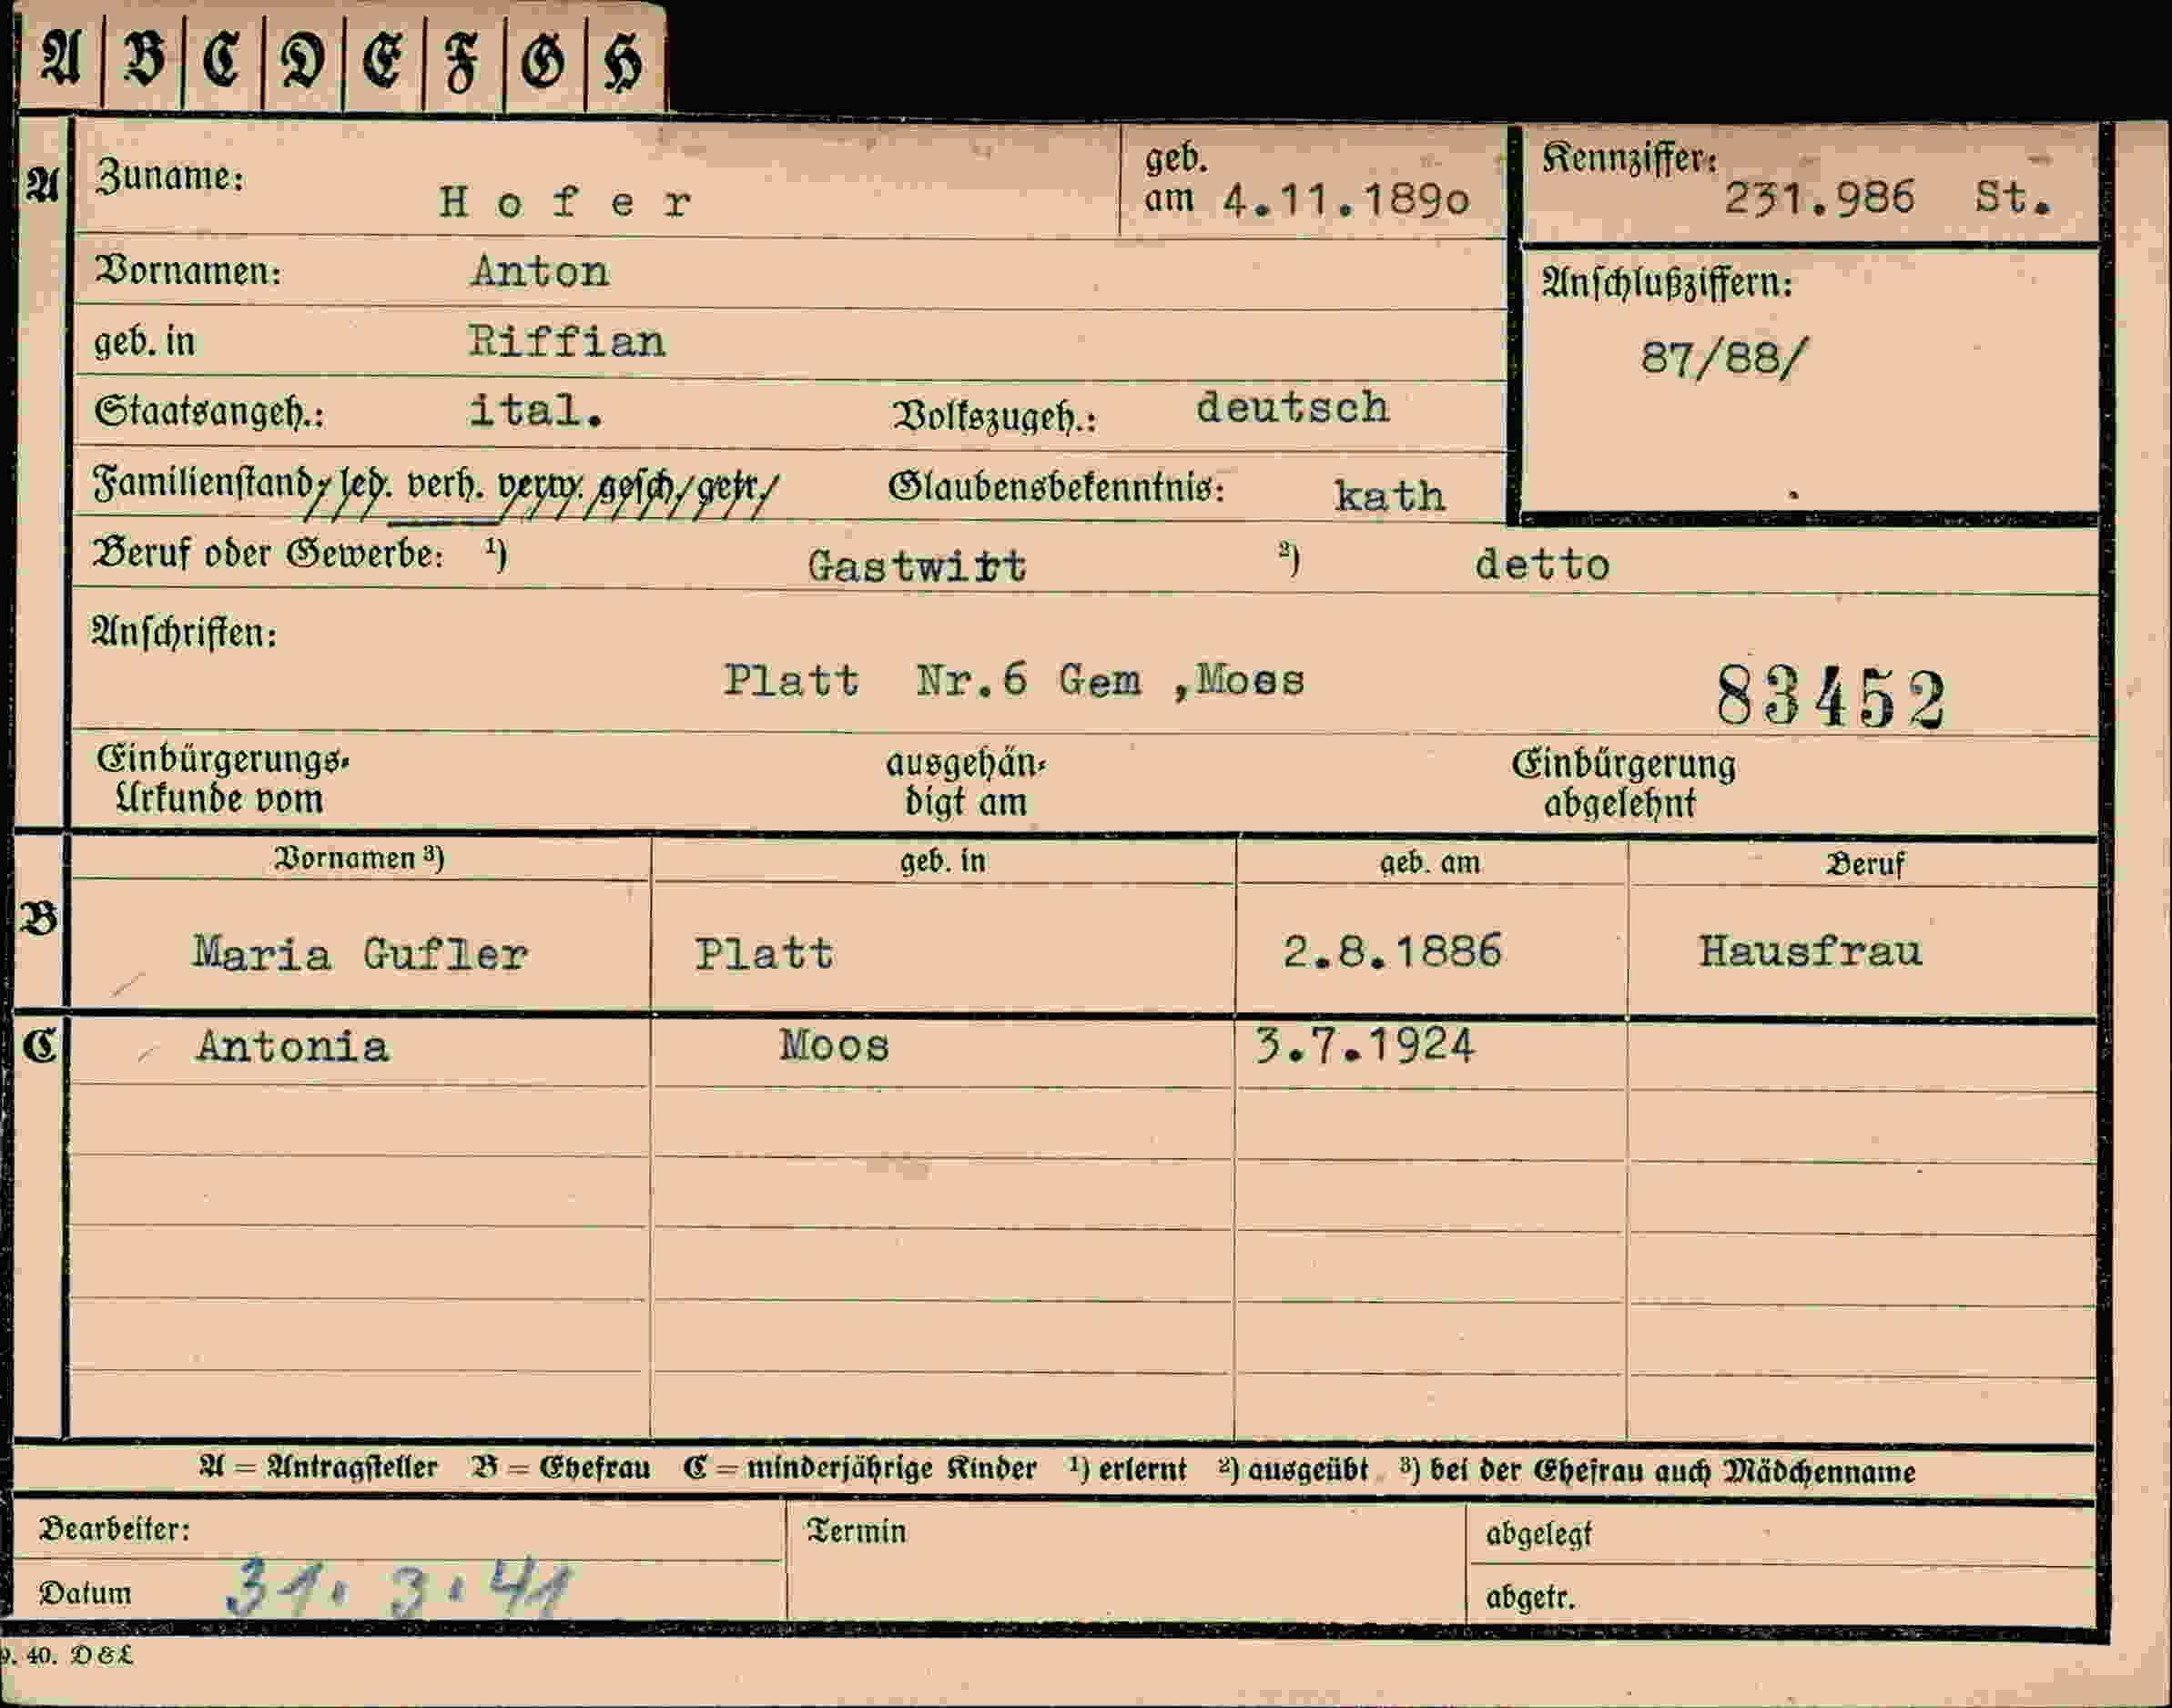 A B C D E F G H
A Zuname: Hofer geb. am 4.11.1890 Kennziffer: 231.986 St.
Vornamen: Anton Anschlußziffern:
geb. in Riffian 87/88/
Staatsangeh.: ital. Volkszugeh.: deutsch
Familienstand, led. verh. verw. gesch. getr. Glaubensbekenntnis: kath
Beruf oder Gewerbe: ¹) Gastwirt ²) detto
Anschriften:
Platt Nr.6 Gem ,Moos 83452
Einbürgerungs- ausgehän- Einbürgerung
Urkunde vom digt am abgelehnt
Vornamen ³) geb. in geb. am Beruf
B Maria Gufler Platt 2.8.1886 Hausfrau
C Antonia Moos 3.7.1924
A = Antragsteller B = Ehefrau C = minderjährige Kinder ¹) erlernt ²) ausgeübt ³) bei der Ehefrau auch Mädchenname
Bearbeiter: Termin abgelegt
Datum 31. 3. 41 abgetr.
9. 40. D & L